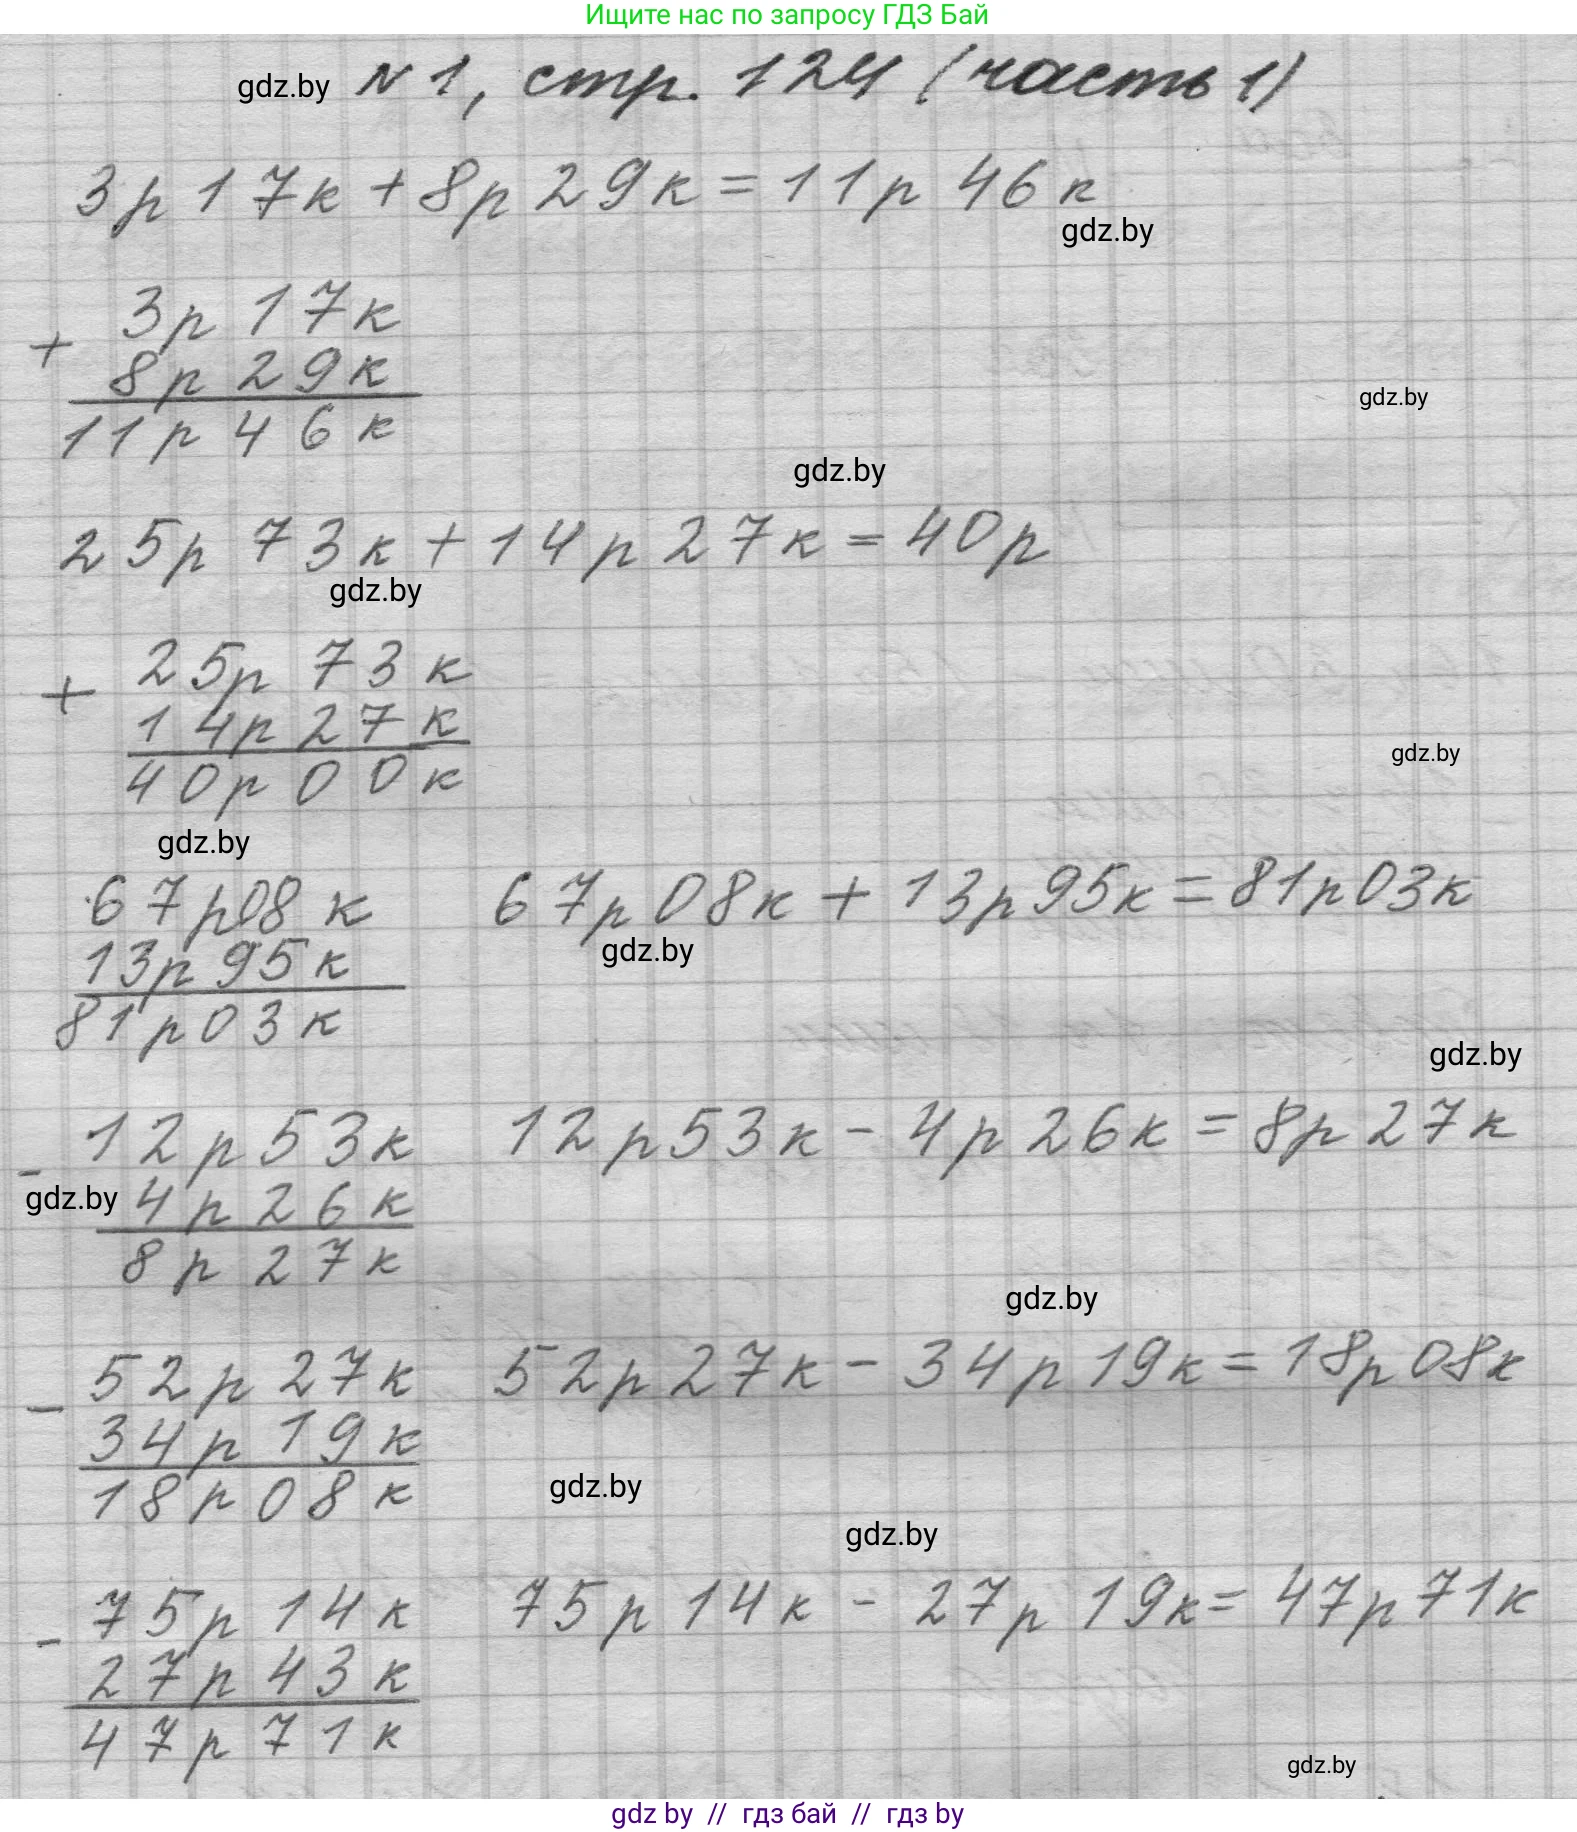 Ищите нас по запросу ГДЗ Бай
gdz.by № 1, стр. 124 (часть 1)
3р 17к + 8р 29к = 11р 46к
gdz.by
+ 3р 17к
8р 29к
gdz.by
11р 46к
gdz.by
25р 73к + 14р 27к = 40р
gdz.by
+ 25р 73к
14р 27к
gdz.by
40р 00к
gdz.by
67р08к 67р08к + 13р95к = 81р03к
gdz.by
13р95к
81р03к
gdz.by
- 12р53к 12р53к - 4р26к = 8р27к
gdz.by 4р26к
8р27к
gdz.by
- 52р27к 52р27к - 34р19к = 18р08к
34р19к
18р08к
gdz.by
gdz.by
- 75р14к 75р14к - 27р19к = 47р71к
27р43к
47р71к
gdz.by
gdz by // гдз бай // гдз by